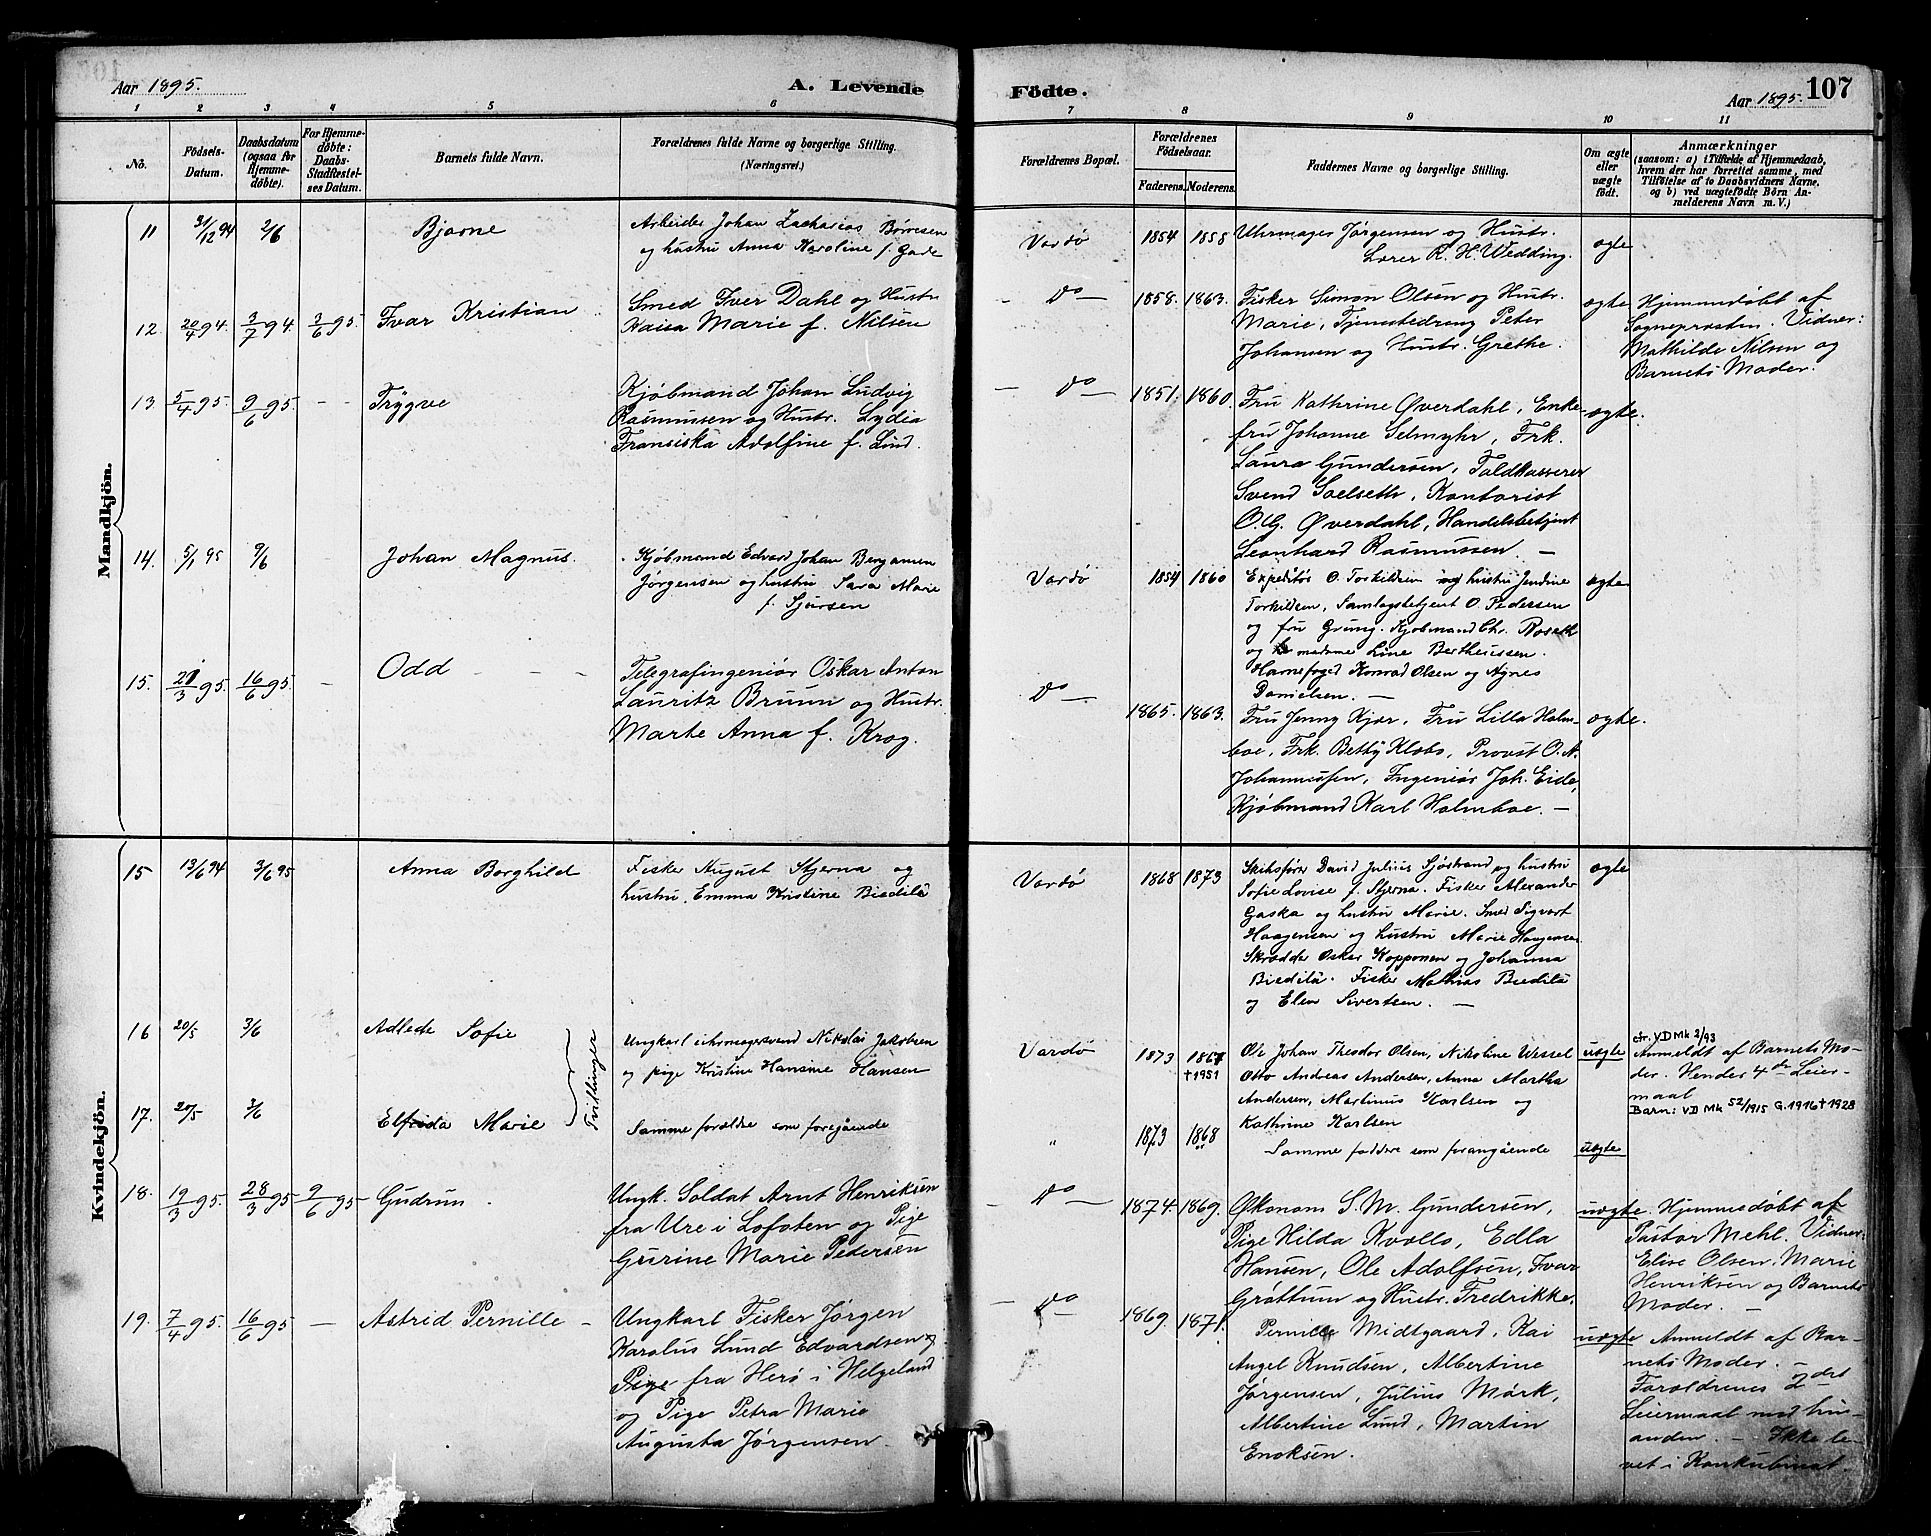 Aar 1895.
A. Levende
Födte.
Aar 1895.
107
1 2 3 4 5 6 7 8 9 10 11
No.
Födsels-
Datum.
Daabsdatum
(ogsaa for
Hjemme-
døbte).
For Hjemme-
døbte:
Daabs-
Stadfæstel-
ses Datum.
Barnets fulde Navn.
Forældrenes fulde Navne og borgerlige Stilling.
(Næringsvei.)
Forældrenes Bopæl.
Forældrenes
Födselsaar.
Faderens. Moderens.
Faddernes Navne og borgerlige Stilling.
Om ægte
eller
uægte
födt.
Anmærkninger
(saasom: a) i Tilfælde af Hjemmedaab,
hvem der har forrettet samme, med
Tilföielse af to Daabsvidners Navne,
og b) ved uægtefödte Börn An-
melderens Navn m. V.)
Mandkjön.
11 31/12 94 2/6 Bjarne
Arbeider Johan Zacharias Børresen
og hustru Anna Karoline f. Gade
Vardø 1854 1858
Uhrmager Jørgensen og Hustr.
Lærer R. H. Wedding.
ægte
12. 20/4 94. 3/7 94. 3/6 95. Ivar Kristian
Smed Iver Dahl og Hustr.
Kaisa Marie f. Nilsen
– Do – 1858. 1863.
Fisker Simon Olsen og Hustr.
Marie, Tjenestedreng Peter
Johansen og Hustr. Grethe.
ægte
Hjemmedøbt af
Sognepræsten. Vidner:
Mathilde Nilsen og
Barnets Moder.
13. 5/4 95. 9/6 95. – – Trygve
Kjøbmand Johan Ludvig
Rasmussen og Hustr. Lydia
Fransiska Adolfine f. Lind.
– Do – 1851. 1860.
Fru Kathrine Øverdahl, Enke-
fru Johanne Selmyhr, Frk.
Laura Gundersen, Toldkasserer
Svend Soelseth, Kontorist
O. G. Øverdahl, Handelsbetjent
Leonhard Rasmussen. –
ægte.
14. 5/1 95 9/6 Johan Magnus.
Kjøbmand Edvard Johan Benjamen
Jørgensen og hustru Sara Marie
f. Sjursen
Vardø 1854 1860
Expeditør O. Torkildsen og hustru Jendine
Torkildsen, Samlagsbetjent O. Pedersen
og fru Grung. Kjøbmand Chr. Roseth
og madame Line Bertheussen.
Havnefoged Konrad Olsen og Agnes
Danielsen. –
ægte
15. 21/3 95. 16/6 95. – Odd – – –
Telegrafingeniør Oskar Anton
Lauritz Bruun og Hustr.
Marte Anna f. Krog.
Do – 1865. 1863.
Fru Jenny Kjær, Fru Lilla Holm-
boe, Frk. Betty Klæbo, Provst O. A.
Johannessen, Ingeniør Joh. Eide,
Kjøbmand Karl Holmboe. –
ægte.
Kvindekjön.
15 13/6 94 3/6 95 Anna Borghild
Fisker August Stjerna og
hustru Emma Kristine Biedilä
Vardø 1868 1873
Skibsfører David Julius Sjöstrand og hustru
Sofie Lovise f. Stjerna. Fisker Alexander
Gaska og hustru Marie. Smed Sigvart
Haagensen og hustru Marie Haagensen
Skrædder Oskar Kopponen og Johanna
Biedilä. Fisker Mathias Biedilä
og Elen Sivertsen. –
ægte
16 20/5 3/6 Adlede Sofie
Tvillinger
Ungkarl uhrmagersvend Nikolai Jakobsen
og pige Kristine Hansine Hansen
Vardø 1873 1867
†1951
Ole Johan Theodor Olsen, Nikoline Wessel
Otto Andreas Andersen, Anna Martha
Andersen, Martinus Karlsen og
Kathrine Karlsen
uægte
ctr. VD Mk 2/93
Anmeldt af Barnets Mo-
der. Hendes 4de Leier-
maal
Barn: VD Mk 52/1915 G. 1916 † 1928
17. 20/5 3/6 Elfrida Marie
Samme forældre som foregående
" 1873 1868
Samme faddere som forangående
uægte
18. 19/3 95. 28/3 95 9/6 95 Gudrun.
Ungk. Soldat Arnt Henriksen
fra Ure i Lofoten og Pige
Gurine Marie Pedersen
– Do – 1874. 1869.
Økonom S. M. Gundersen,
Pige Hilda Kvollo, Edla
Hansen, Ole Adolfsen, Ivar
Grøttum og Hustr. Fredrikke.
uægte.
Hjemmedøbt af
Pastor Mehl. Vidner:
Elise Olsen, Marie
Henriksen og Barnets
Moder. –
19. 7/4 95. 16/6 95 – Astrid Pernille –
Ungkarl Fisker Jørgen
Karolus Lund Edvardsen og
Pige fra Herø i Helgeland
og Pige Petra Marie
Augusta Jørgensen.
– Do – 1869. 1871.
Pernille Midtgaard, Kai
Angel Knudsen, Albertine
Jørgensen, Julius Mørk,
Albertine Lund, Martin
Enoksen.
uægte
Anmeldt af Bar-
nets Moder. –
Forældrenes 2det
Leiermaal med hin-
anden. – Ikke le-
vet i Konkubinat.